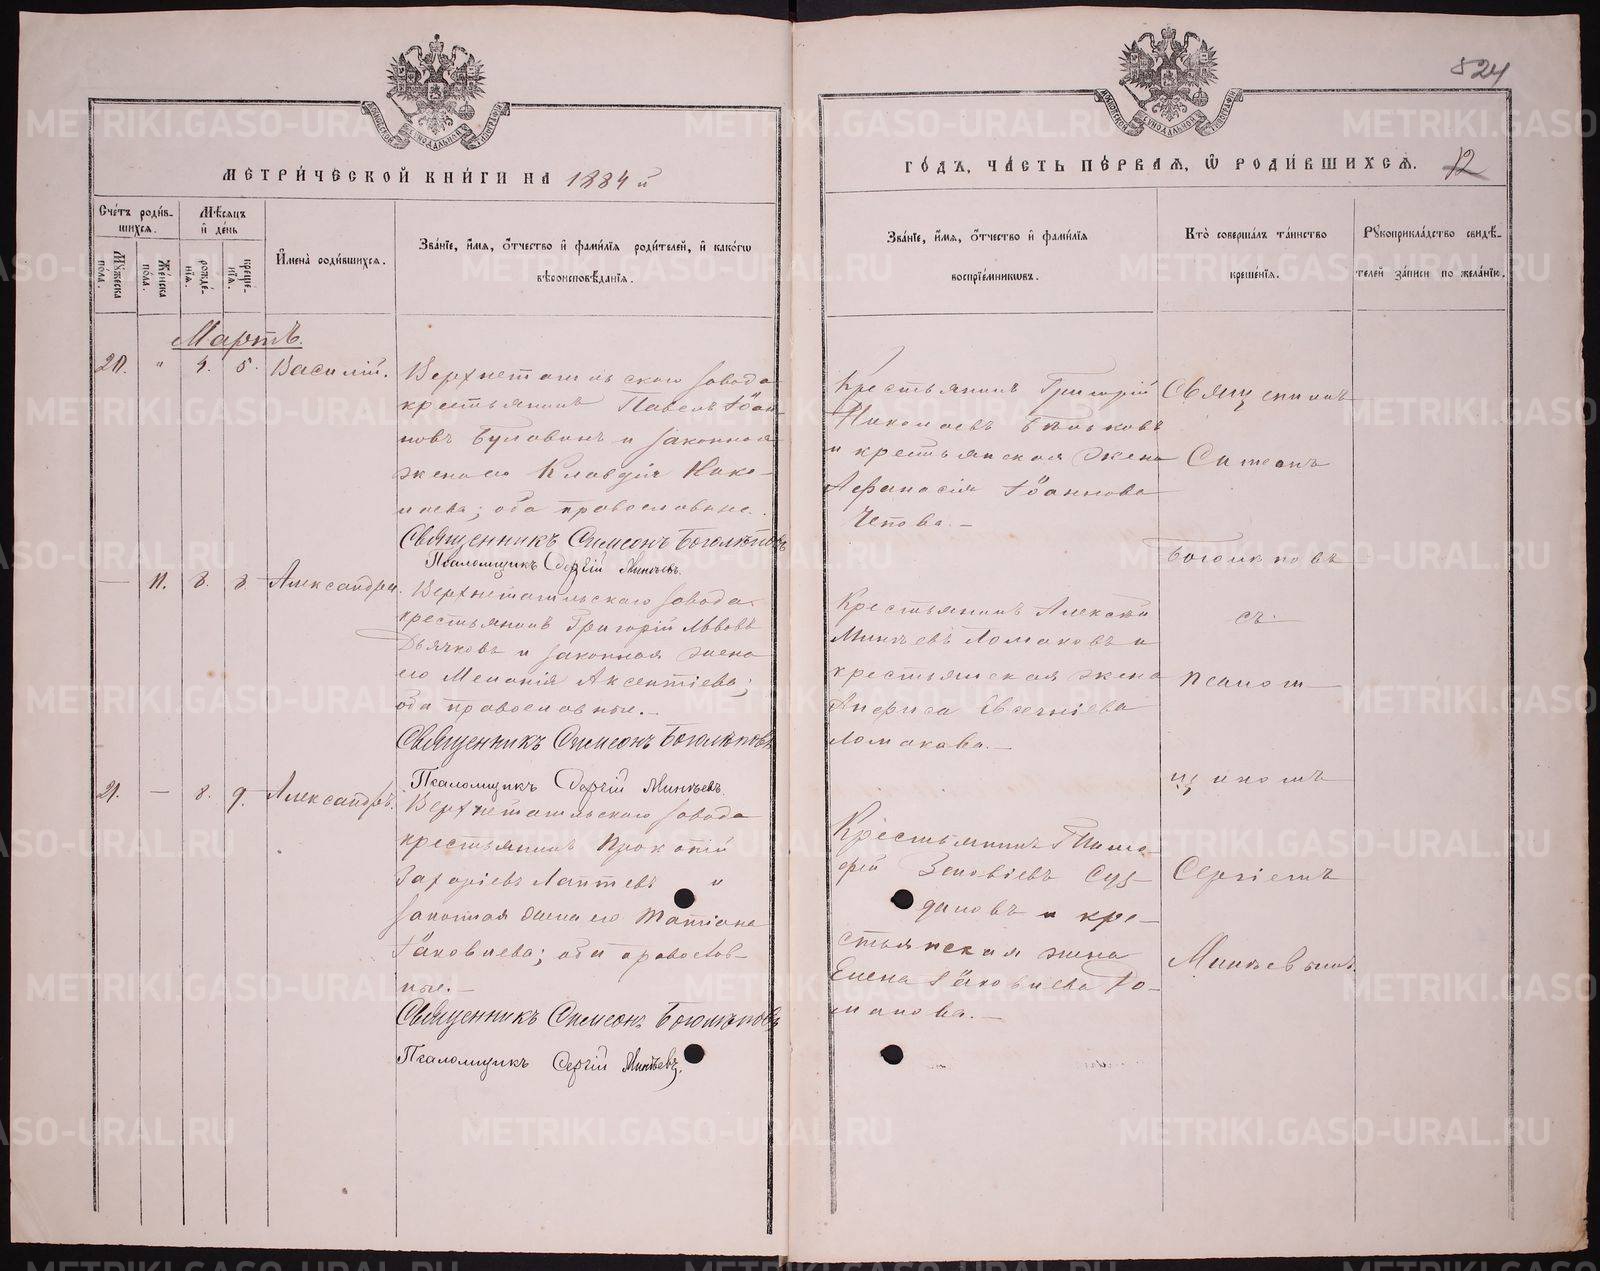 824
МЕТРИЧЕСКОЙ КНИГИ НА 1884 й
ГОДЪ, ЧАСТЬ ПЕРВАЯ, Ѿ РОДИВШИХСЯ.
12
Счетъ родив-
шихся.
Мѣсяцъ
и день
Мужеска пола.
Женска пола.
рожде-
нія.
креще-
нія.
Имена родившихся.
Званіе, имя, отчество и фамилія родителей, и какогѡ
вѣроисповѣданія.
Званіе, имя, отчество и фамилія
воспріемникѡвъ.
Кто совершалъ таинство
крещенія.
Рукоприкладство свидѣ-
телей записи по желанію.
Мартъ.
20. " 4. 5. Василій.
Верхнетагильскаго завода
крестьянинъ Павелъ Іоан-
новъ Булавинъ и законная
жена его Клавдія Нико-
лаева; оба православные.
Священникъ Симеонъ Боголѣповъ
Псаломщикъ Сергій Минѣевъ.
Крестьянинъ Григорій
Николаевъ
и крестьянская жена
Афанасія Іоаннова
— 11. 8. 8. Александра.
Верхнетагильскаго завода
крестьянинъ Григорій Львовъ
Дьячковъ и законная жена
его Меланія Аксентіева;
оба православные. —
Священникъ Симеонъ Боголѣповъ
Псаломщикъ Сергій Минѣевъ.
Крестьянинъ Алексѣй
Минѣевъ Ломаковъ и
крестьянская жена
Анфиса Евгеніева
Ломакова. —
21. — 8. 9. Александръ.
Верхнетагильскаго завода
крестьянинъ Прокопій
Захаріевъ Лаптевъ и
законная жена его Татіана
Іаковлева; оба православ-
ные. —
Священникъ Симеонъ Боголѣповъ
Псаломщикъ Сергій Минѣевъ.
Крестьянинъ Тимо-
фей Зиновіевъ Суз-
даловъ и кре-
стьянская жена
Елена Іаковлева Ро-
манова. —
Священникъ
Симеонъ
Боголѣповъ
съ
псалом-
щикомъ
Сергіемъ
Минѣевымъ.
METRIKI.GASO-URAL.RU